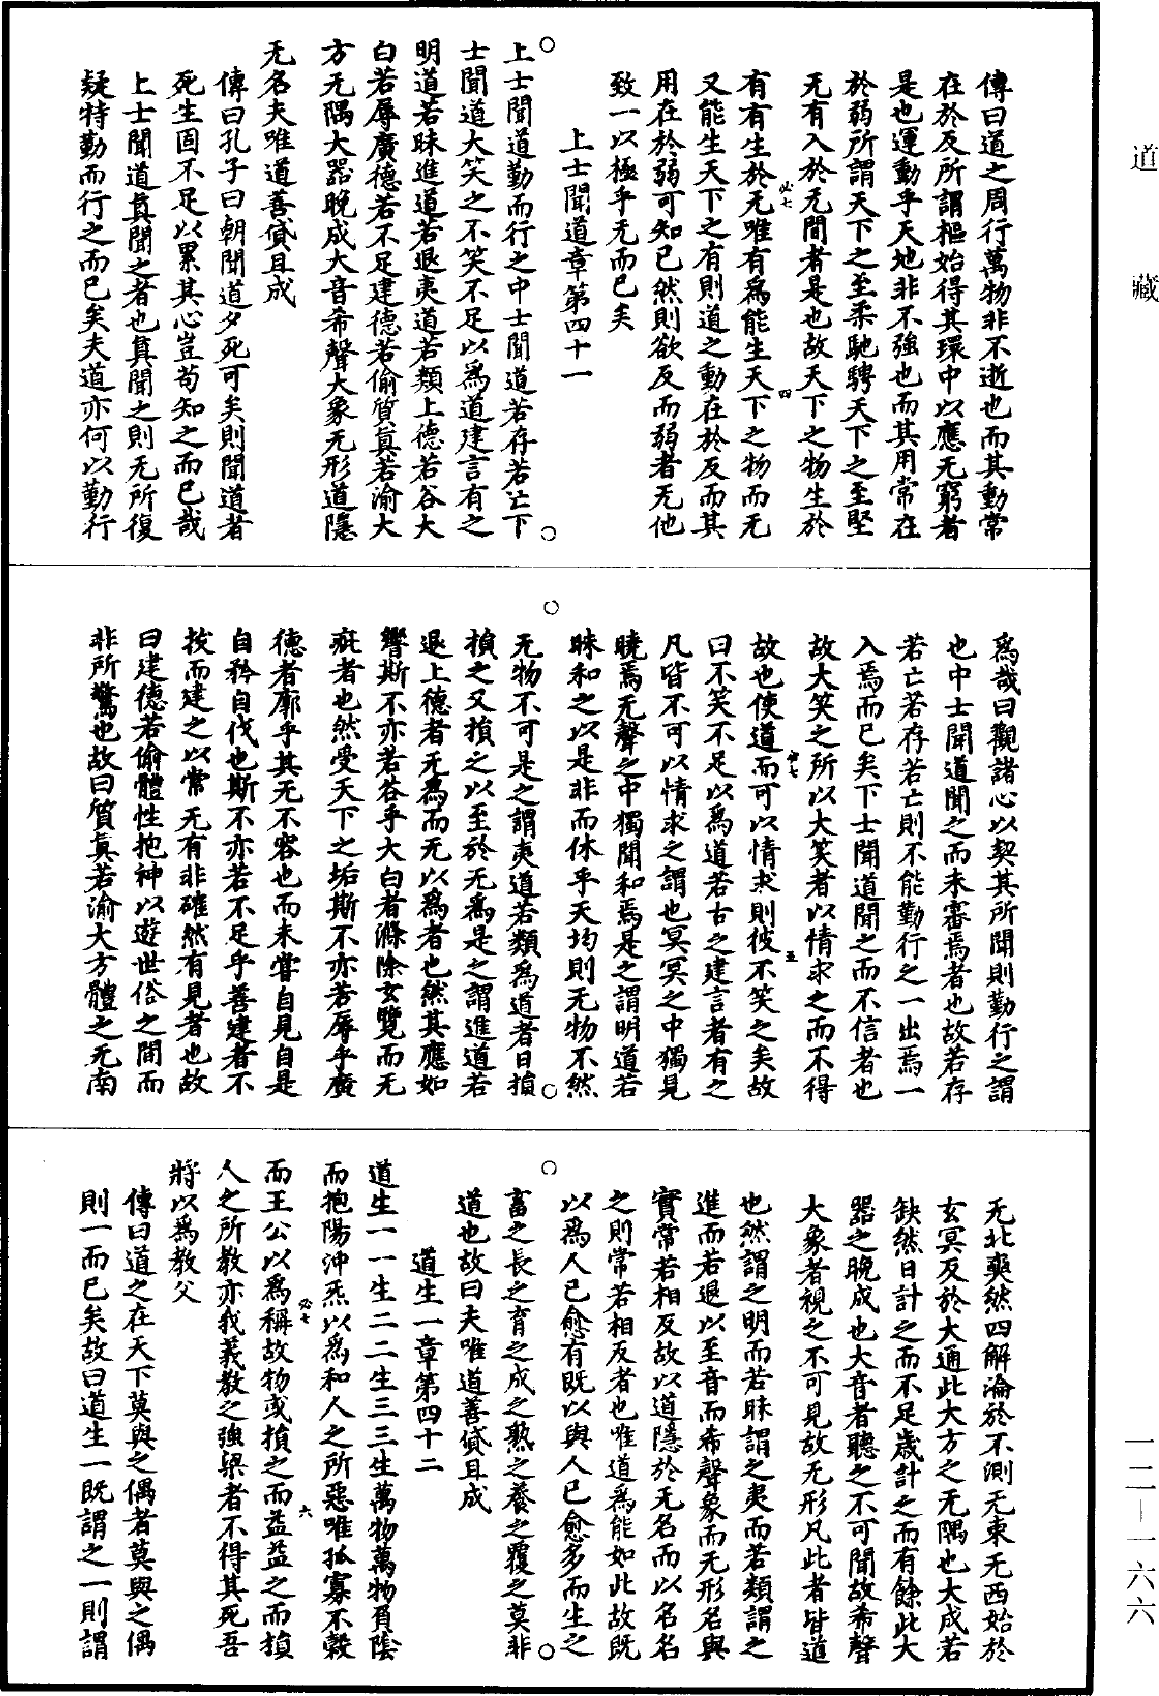 道藏
傳曰道之周行萬物非不逝也而其動常
在於反所謂樞始得其環中以應无窮者
是也運動乎天地非不強也而其用常在
於弱所謂天下之至柔馳騁天下之至堅
无有入於无間者是也故天下之物生於
必七
四
有有生於无唯有爲能生天下之物而无
又能生天下之有則道之動在於反而其
用在於弱可知已然則欲反而弱者无他
致一以極乎无而已矣
上士聞道章第四十一
上士聞道勤而行之中士聞道若存若亡下
士聞道大笑之不笑不足以爲道建言有之
明道若昧進道若退夷道若類上德若谷大
白若辱廣德若不足建德若偷質真若渝大
方无隅大器晚成大音希聲大象无形道隱
无名夫唯道善貸且成
傳曰孔子曰朝聞道夕死可矣則聞道者
死生固不足以累其心豈苟知之而已哉
上士聞道真聞之者也真聞之則无所復
疑特勤而行之而已矣夫道亦何以勤行
爲哉曰觀諸心以契其所聞則勤行之謂
也中士聞道聞之而未審焉者也故若存
若亡若存若亡則不能勤行之一出焉一
入焉而已矣下士聞道聞之而不信者也
故大笑之所以大笑者以情求之而不得
必七
五
故也使道而可以情求則彼不笑之矣故
曰不笑不足以爲道若古之建言者有之
凡皆不可以情求之謂也冥冥之中獨見
曉焉无聲之中獨聞和焉是之謂明道若
昧和之以是非而休乎天均則无物不然
无物不可是之謂夷道若類爲道者日損
損之又損之以至於无爲是之謂進道若
退上德者无爲而无以爲者也然其應如
響斯不亦若谷乎大白者滌除玄覽而无
疵者也然受天下之垢斯不亦若辱乎廣
德者廓乎其无不容也而未嘗自見自是
自矜自伐也斯不亦若不足乎善建者不
拔而建之以常无有非確然有見者也故
曰建德若偷體性抱神以遊世俗之間而
非所驚也故曰質真若渝大方體之无南
无北奭然四解淪於不測无東无西始於
玄冥反於大通此大方之无隅也大成若
缺然日計之而不足歲計之而有餘此大
器之晚成也大音者聽之不可聞故希聲
大象者視之不可見故无形凡此者皆道
也然謂之明而若昧謂之夷而若類謂之
進而若退以至音而希聲象而无形名與
實常若相反故以道隱於无名而以名名
之則常若相反者也唯道爲能如此故既
以爲人已愈有既以與人已愈多而生之
畜之長之育之成之熟之養之覆之莫非
道也故曰夫唯道善貸且成
道生一章第四十二
道生一一生二二生三三生萬物萬物負陰
而抱陽沖炁以爲和人之所惡唯孤寡不穀
必七
六
而王公以爲稱故物或損之而益益之而損
人之所教亦我義教之強梁者不得其死吾
將以爲教父
傳曰道之在天下莫與之偶者莫與之偶
則一而已矣故曰道生一既謂之一則謂
一二－一六六